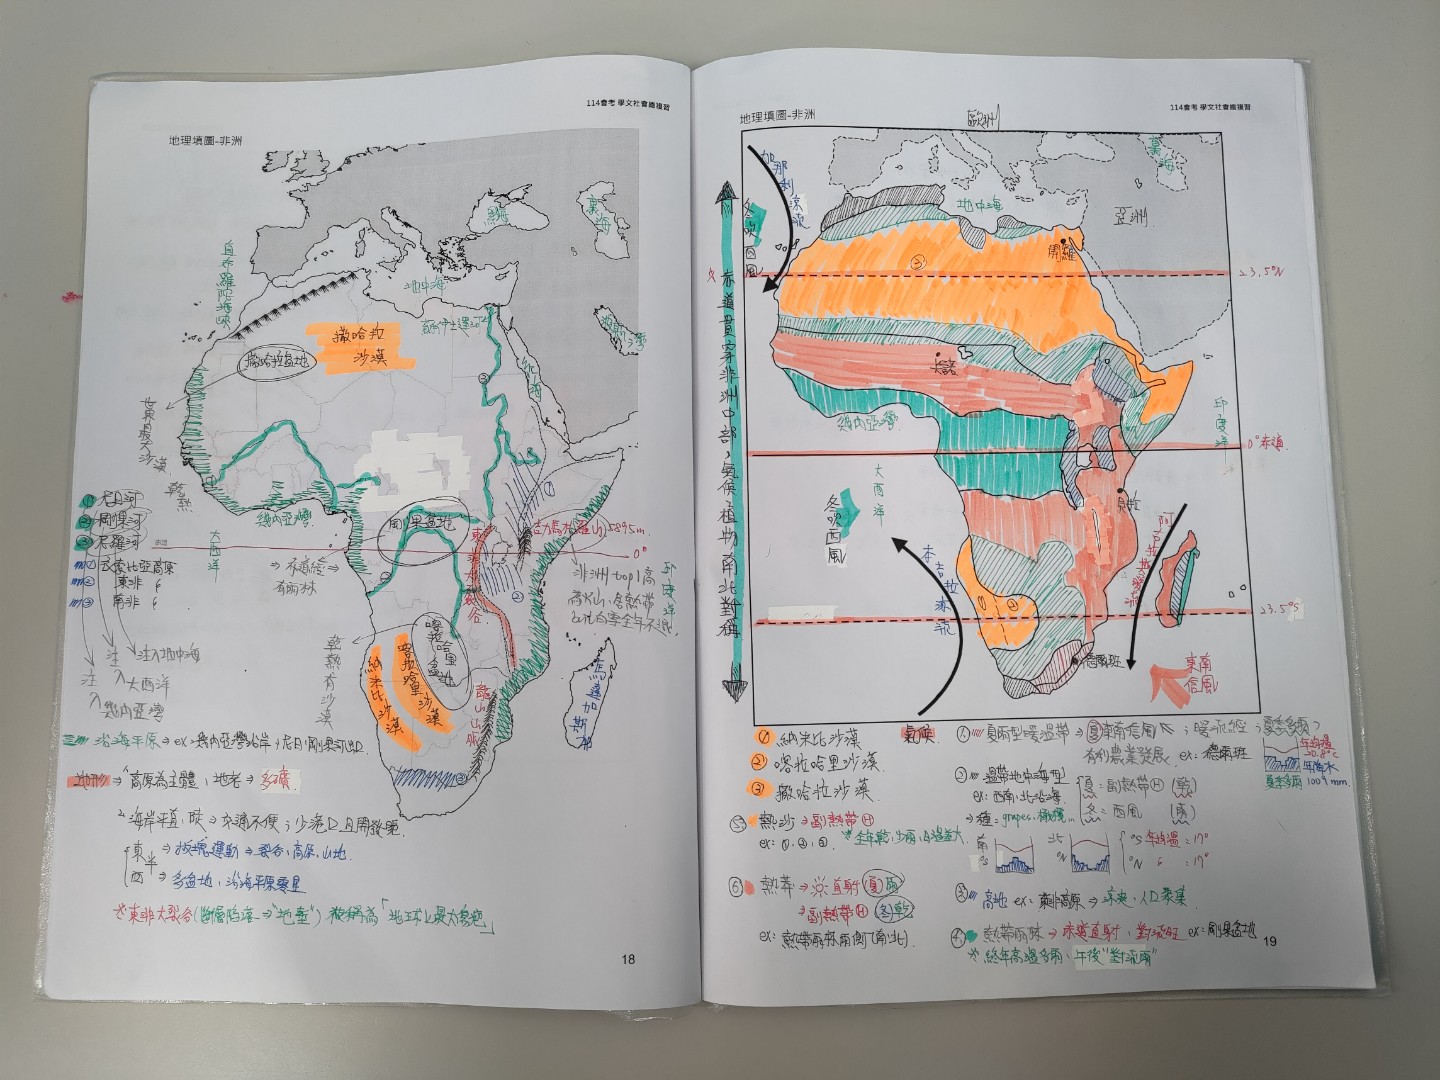 114會考 學文社會總複習
地理填圖-非洲
黑海
裏海
直布羅陀海峽
地中海
蘇伊士運河
波斯灣
撒哈拉
沙漠
撒哈拉盆地
紅海
世界最大沙漠
乾熱
① 尼日河
② 剛果河
③ 尼羅河
① 衣索比亞高原
② 東非 〃
③ 南非 〃
幾內亞灣
大西洋
剛果盆地
東非大裂谷
吉力馬札羅山 5895m
0°
赤道
⇒ 不適經 ⇒
有雨林
非洲top1高
印度洋
注入地中海
注入大西洋
注入幾內亞灣
乾熱有沙漠
納米比沙漠
喀拉哈里沙漠
喀拉哈里盆地
龍山山脈
馬達加斯加
沿海平原 ⇒ ex: 幾內亞灣沿岸、尼日、剛果河出口
地形 ⇒ 1.高原為主體、地老 ⇒ 多礦
2.海岸平直、陡 ⇒ 交通不便;少港口且開發晚
東半 ⇒ 板塊運動 ⇒ 裂谷、高原、山地
西 ⇒ 多盆地、沿海平原零星
☆東非大裂谷(斷層陷落 ⇒ "地塹") 被稱為「地球上最大傷疤」
18
114會考 學文社會總複習
地理填圖-非洲
歐洲
裏海
加那利涼流
冬吹西風
地中海
亞洲
開羅
③
23.5°N
赤道貫穿非洲中部,氣候、植物南北對稱
幾內亞灣
印度洋
0°赤道
大西洋
冬吹西風
本吉拉涼流
①
②
23.5°S
德爾班
東南
信風
① 納米比沙漠
② 喀拉哈里沙漠
③ 撒哈拉沙漠
氣候
① 夏雨型暖溫帶 ⇒ 夏東南信風;暖流經;夏季多雨
有利農業發展 ex: 德爾班
年均溫
年降水
夏季多雨 1009mm
② 溫帶地中海型
ex: 西南、北沿海
夏: 副熱帶H (乾)
冬: 西風 (濕)
⇒ 種: grapes、橄欖...
南
°S
北
°N
°S 年均溫: 17°
°N 〃 : 17°
③ 高地 ex: 東非高原 ⇒ 涼爽、人口聚集
④ 熱帶雨林 ⇒ 赤道直射、對流旺 ex: 剛果盆地
☆ 終年高溫多雨、午後"對流雨"
⑤ 熱沙 ⇒ 副熱帶H
ex: ①、②、③
☆全年乾、少雨、日溫差大
⑥ 熱莽 ⇒ 直射 (夏)雨
⇒ 副熱帶H (冬)乾
ex: 熱帶雨林兩側(南北)
19